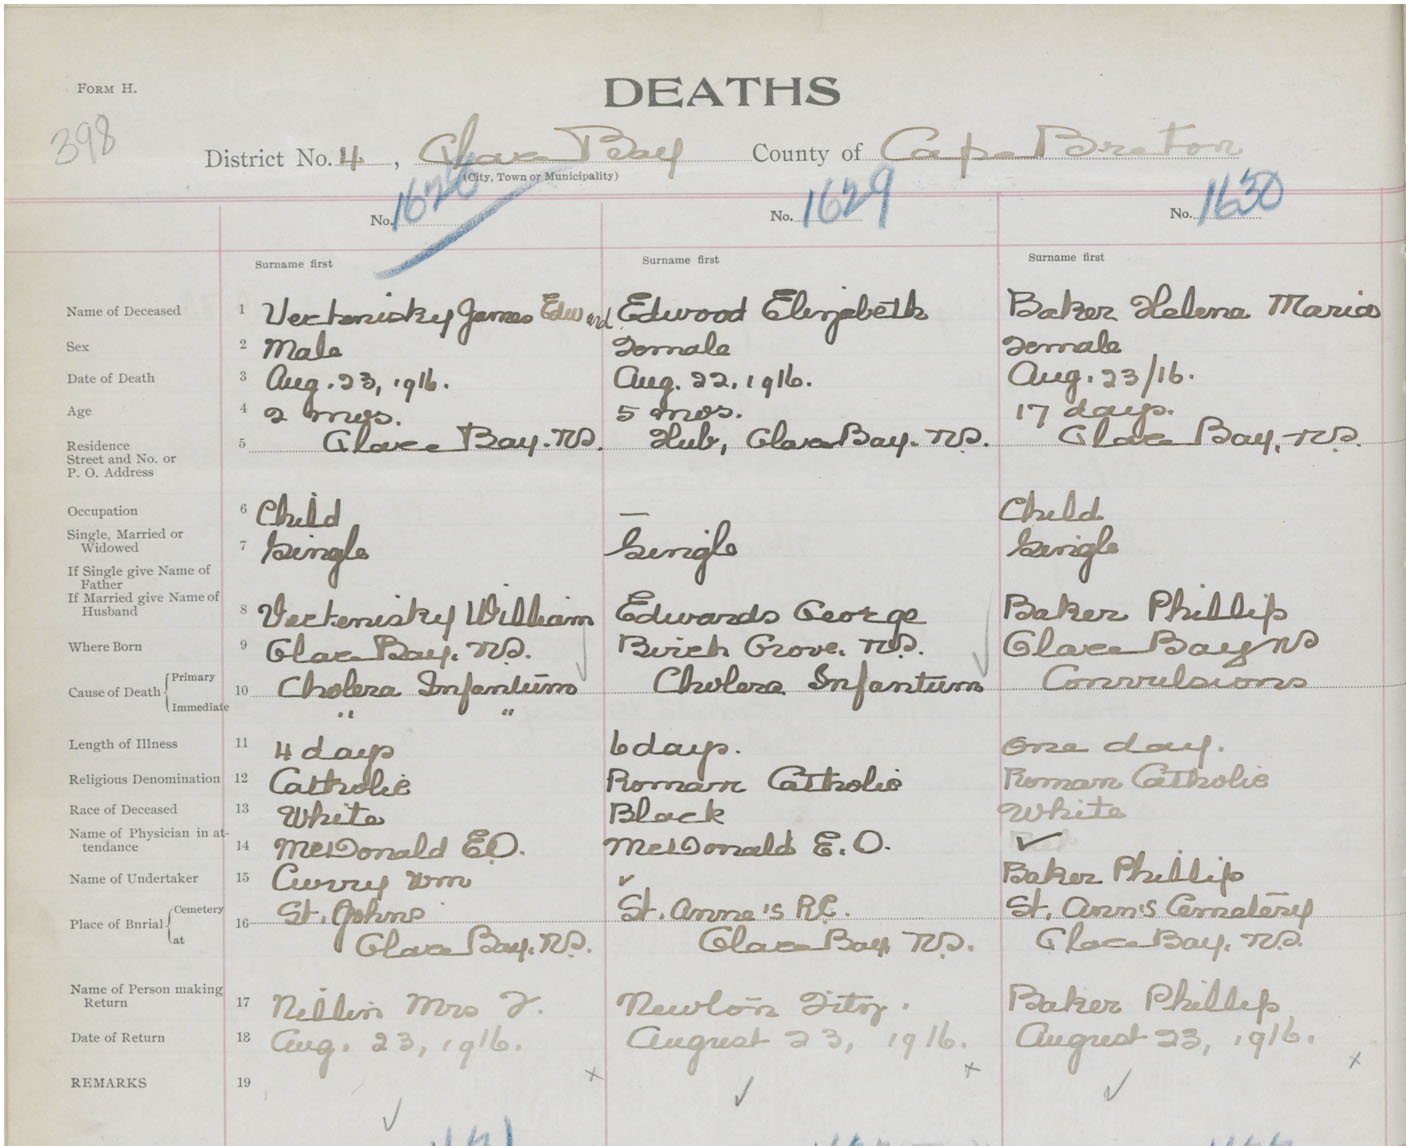 FORM H.
DEATHS
398
District No. 4, Glace Bay County of Cape Breton
(City, Town or Municipality)
No. 1628 No. 1629 No. 1630
Surname first Surname first Surname first
Name of Deceased 1 Vectenisky James Edward Edwood Elizabeth Baker Helena Maria
Sex 2 Male Female Female
Date of Death 3 Aug. 23, 1916. Aug. 22, 1916. Aug. 23/16.
Age 4 2 mos. 5 mos. 17 days.
Residence 5 Glace Bay. N.S. Hub, Glace Bay. N.S. Glace Bay, N.S.
Street and No. or
P. O. Address
Occupation 6 Child — Child
Single, Married or
Widowed 7 Single Single Single
If Single give Name of
Father
If Married give Name of
Husband 8 Vectenisky William Edwards George Baker Phillip
Where Born 9 Glace Bay. N.S. Birch Grove. N.S. Glace Bay NS
Cause of Death { Primary 10 Cholera Infantum Cholera Infantum Convulsions
Immediate " "
Length of Illness 11 4 days 6 days. One day.
Religious Denomination 12 Catholic Roman Catholic Roman Catholic
Race of Deceased 13 White Black White
Name of Physician in at-
tendance 14 McDonald E.O. McDonald E.O. ✓
Name of Undertaker 15 Curry Wm ✓ Baker Phillip
Place of Burial { Cemetery 16 St. Johns St. Anne's R.C. St. Ann's Cemetery
at Glace Bay, N.S. Glace Bay, N.S. Glace Bay, N.S.
Name of Person making
Return 17 Nillin Mrs F. Newton Fitz. Baker Phillip
Date of Return 18 Aug. 23, 1916. August 23, 1916. August 23, 1916.
REMARKS 19